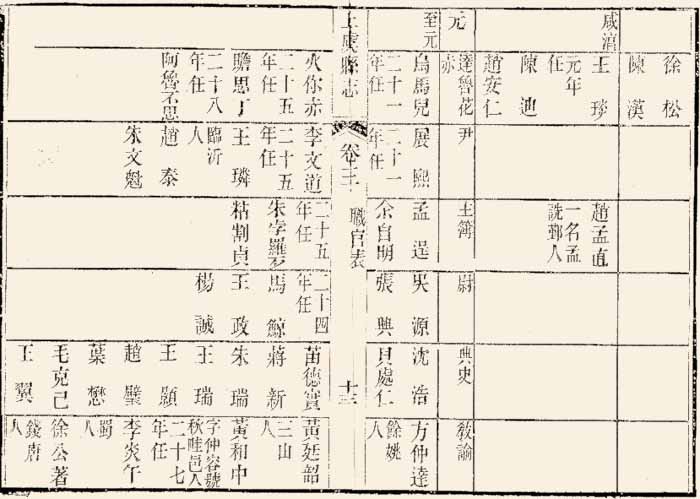 徐松
陳漢
咸淳
王琰
元年任
陳迪
趙安仁
趙孟直
一名孟詵鄞人
元
達魯花赤
尹
主簿
尉
典史
教諭
至元
烏馬兒
二十一年任
展熙
二十一年任
孟逞
余自明
吳源
張興
沈浩
貝處仁
方仲達
餘姚人
上虞縣志
卷三
職官表
十三
火你赤
二十五年任
瞻思丁
二十八年任
阿魯不思
李文道
二十五年任
王璘
臨沂人
趙泰
朱文魁
二十五年任
朱孛羅歹
粘割貞
二十四年任
馬鯨
王政
楊誠
苗德實
蔣新
朱瑞
王瑞
王顯
趙璧
葉懋
毛克己
王翼
黃廷韶
三山人
黃和中
字仲容號秋畦邑人
二十七年任
李炎午
蜀人
徐公著
錢唐人